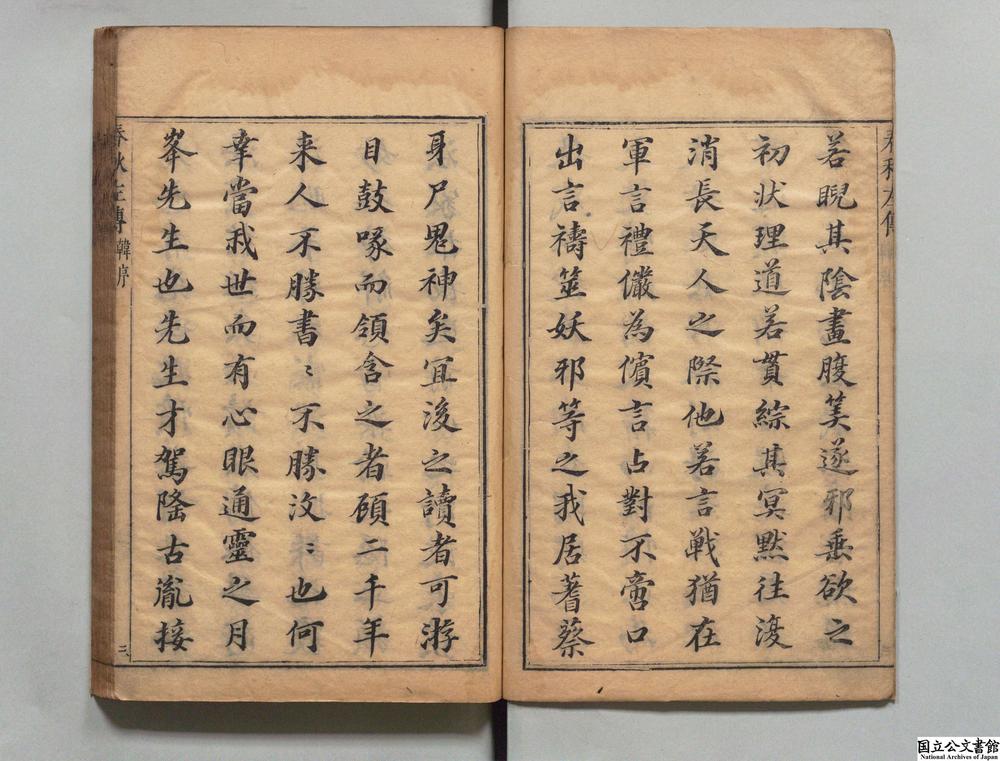 若睨其陰畫腹美遂邪垂欲之
初狀理道若貫綜其冥黙往復
消長天人之際他若言戰猶在
軍言禮儼為儐言占對不啻口
出言禱筮妖邪等之我居蓍蔡
身尸鬼神矣冝後之讀者可游
目鼓喙而領含之者顧二千年
来人不勝書〻不勝汶〻也何
幸當我世而有心眼通靈之月
峯先生也先生才駕隆古胤接
春秋左傳 韓序
三
国立公文書館
National Archives of Japan